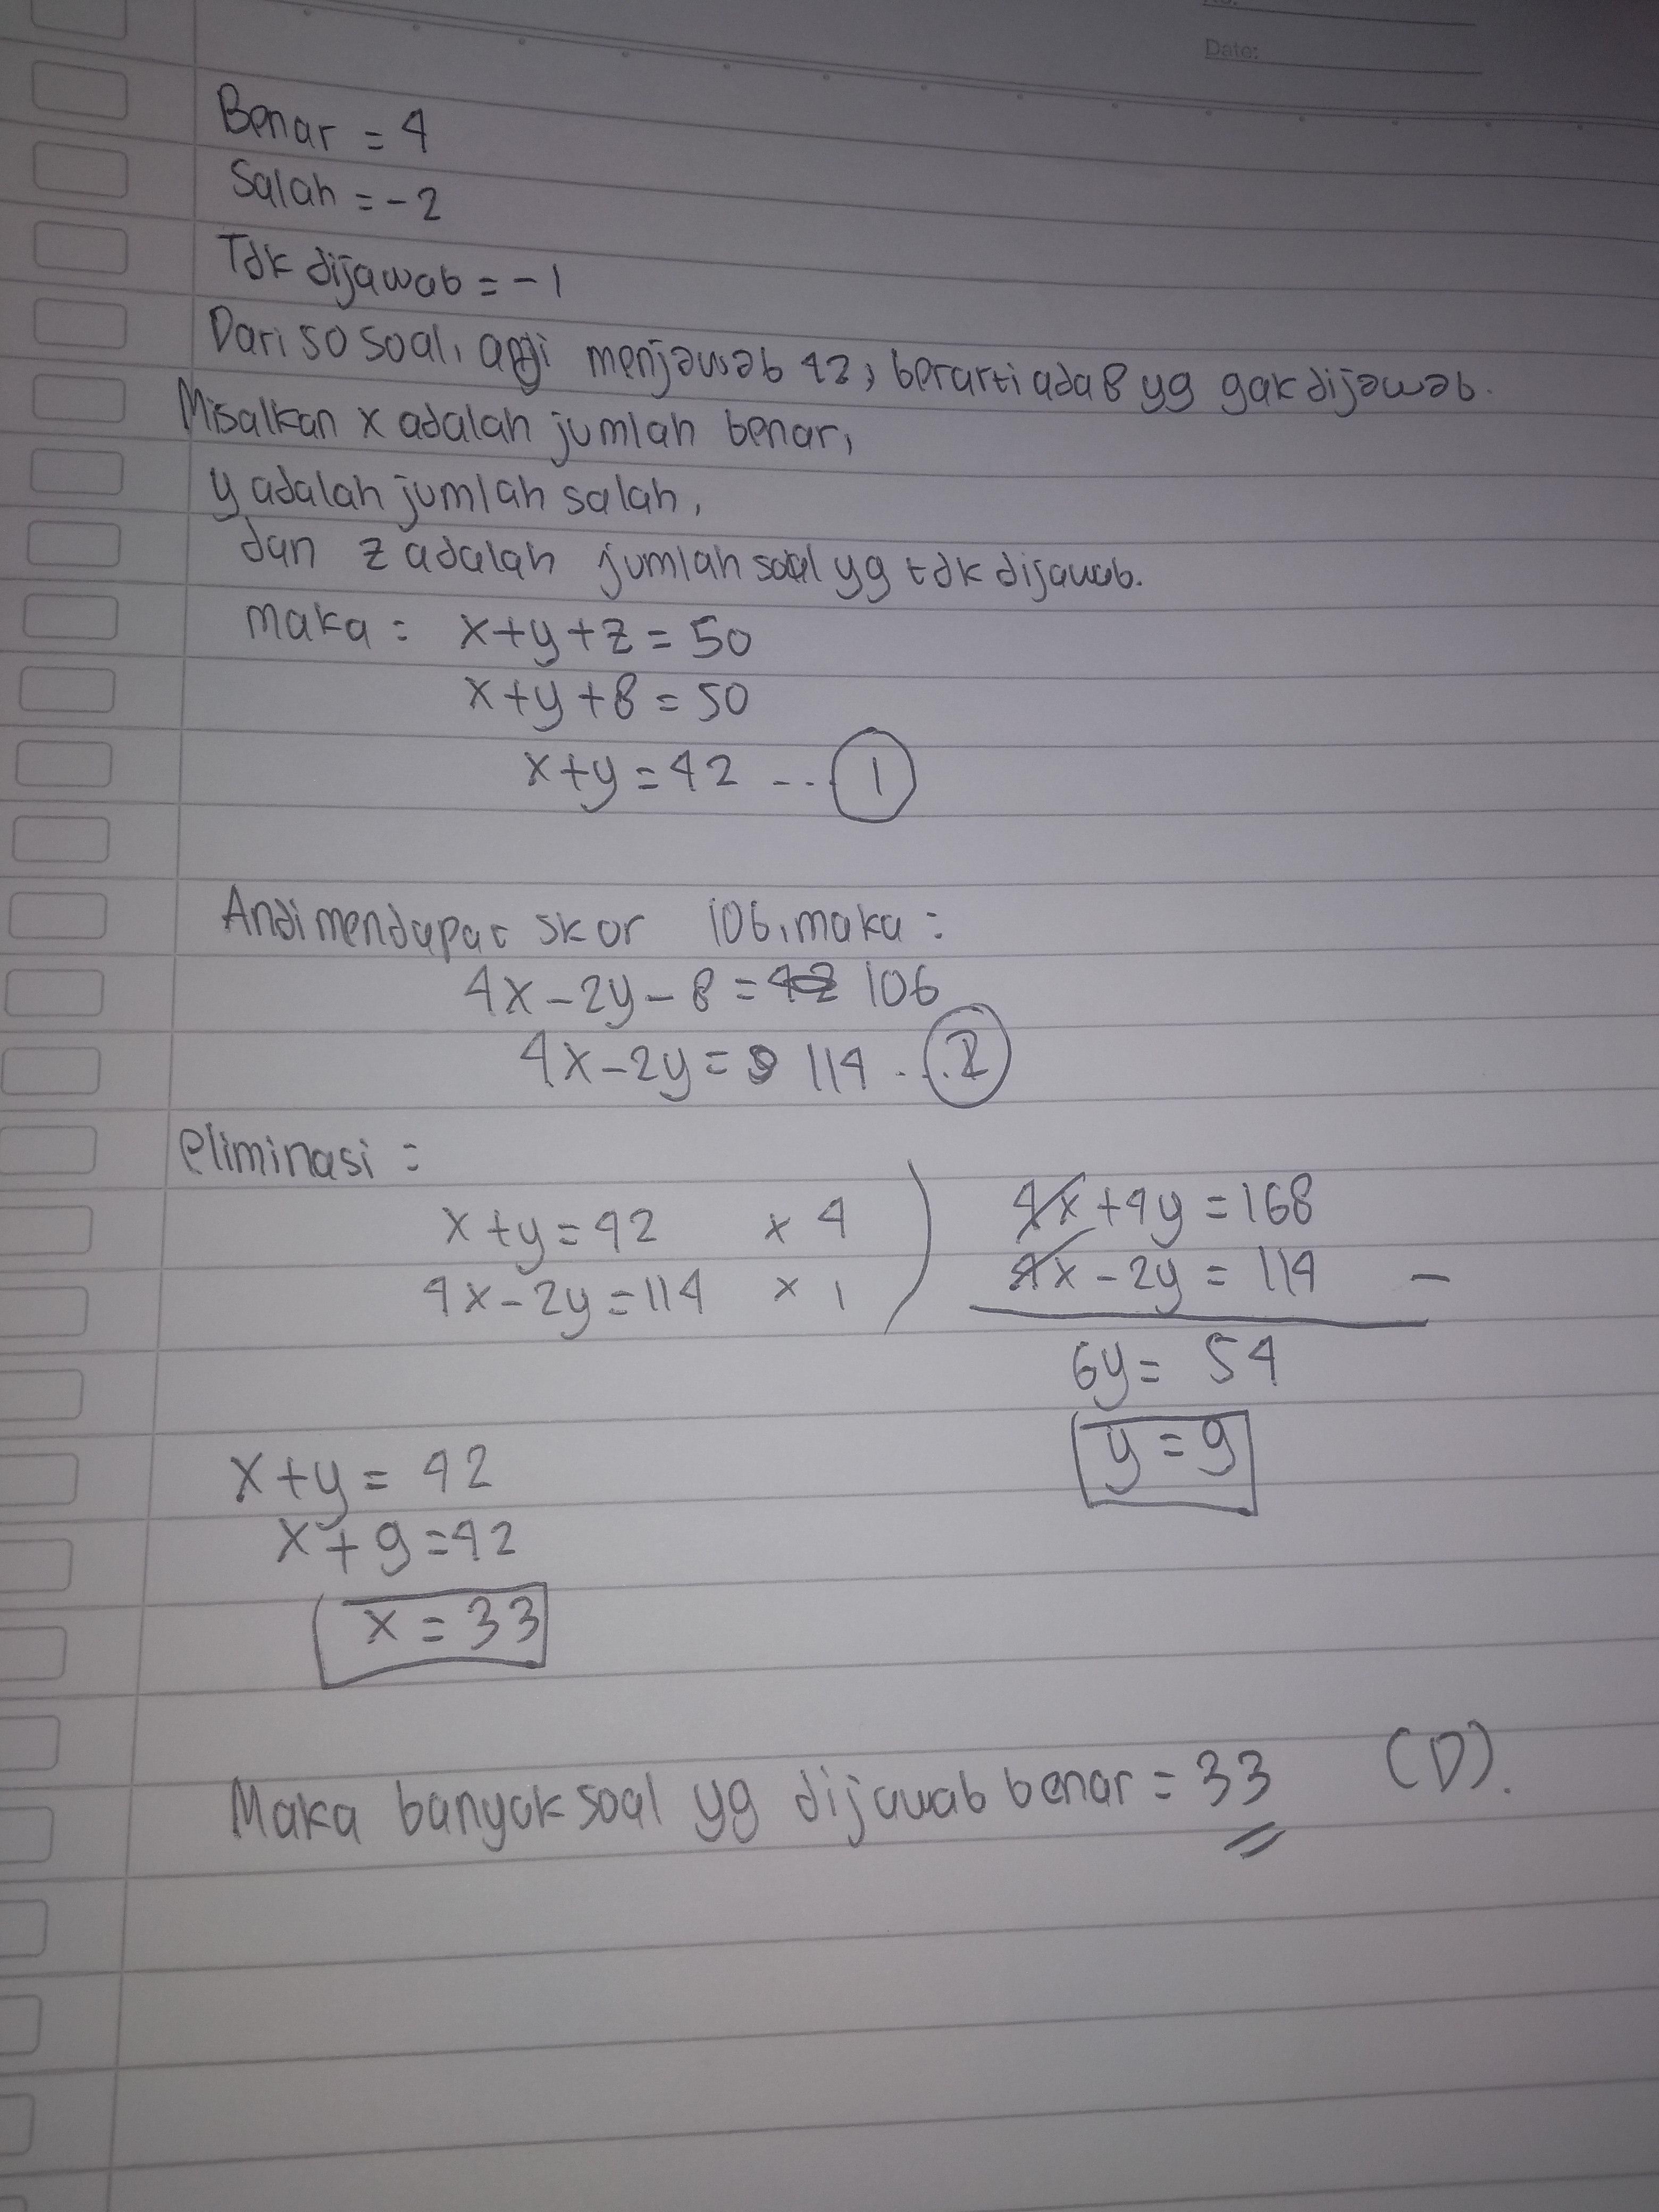 Date:
Benar = 4
Salah = -2
Tdk dijawab = -1
Dari 50 soal, andi menjawab 42, berarti ada 8 yg gak dijawab.
Misalkan x adalah jumlah benar,
y adalah jumlah salah,
dan z adalah jumlah soal yg tdk dijawab.
maka: x+y+z = 50
x+y+8 = 50
x+y = 42 ... 1
Andi mendapat skor 106, maka:
4x-2y-8 = 106
4x-2y = 114 ... 2
eliminasi =
x+y = 42 x 4 ) 4x+4y = 168
4x-2y = 114 x 1 4x-2y = 114 -
6y = 54
y = 9
x+y = 42
x+9 = 42
x = 33
Maka banyak soal yg dijawab benar = 33 (D).